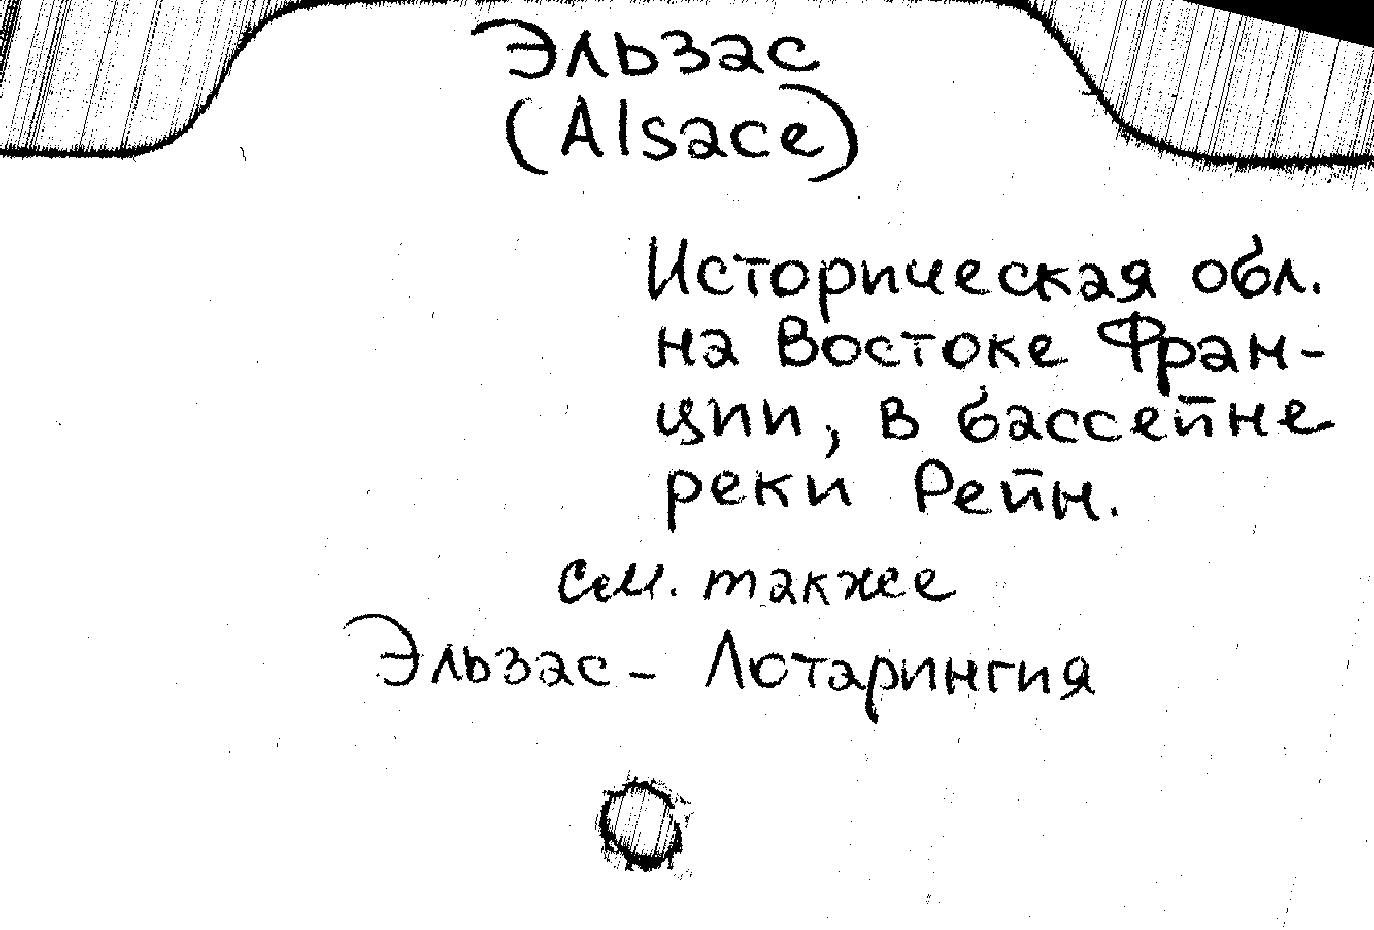 Эльзас
(Alsace)
Историческая обл.
на Востоке Фран-
ции, в бассейне
реки Рейн.
См. также
Эльзас - Лотарингия